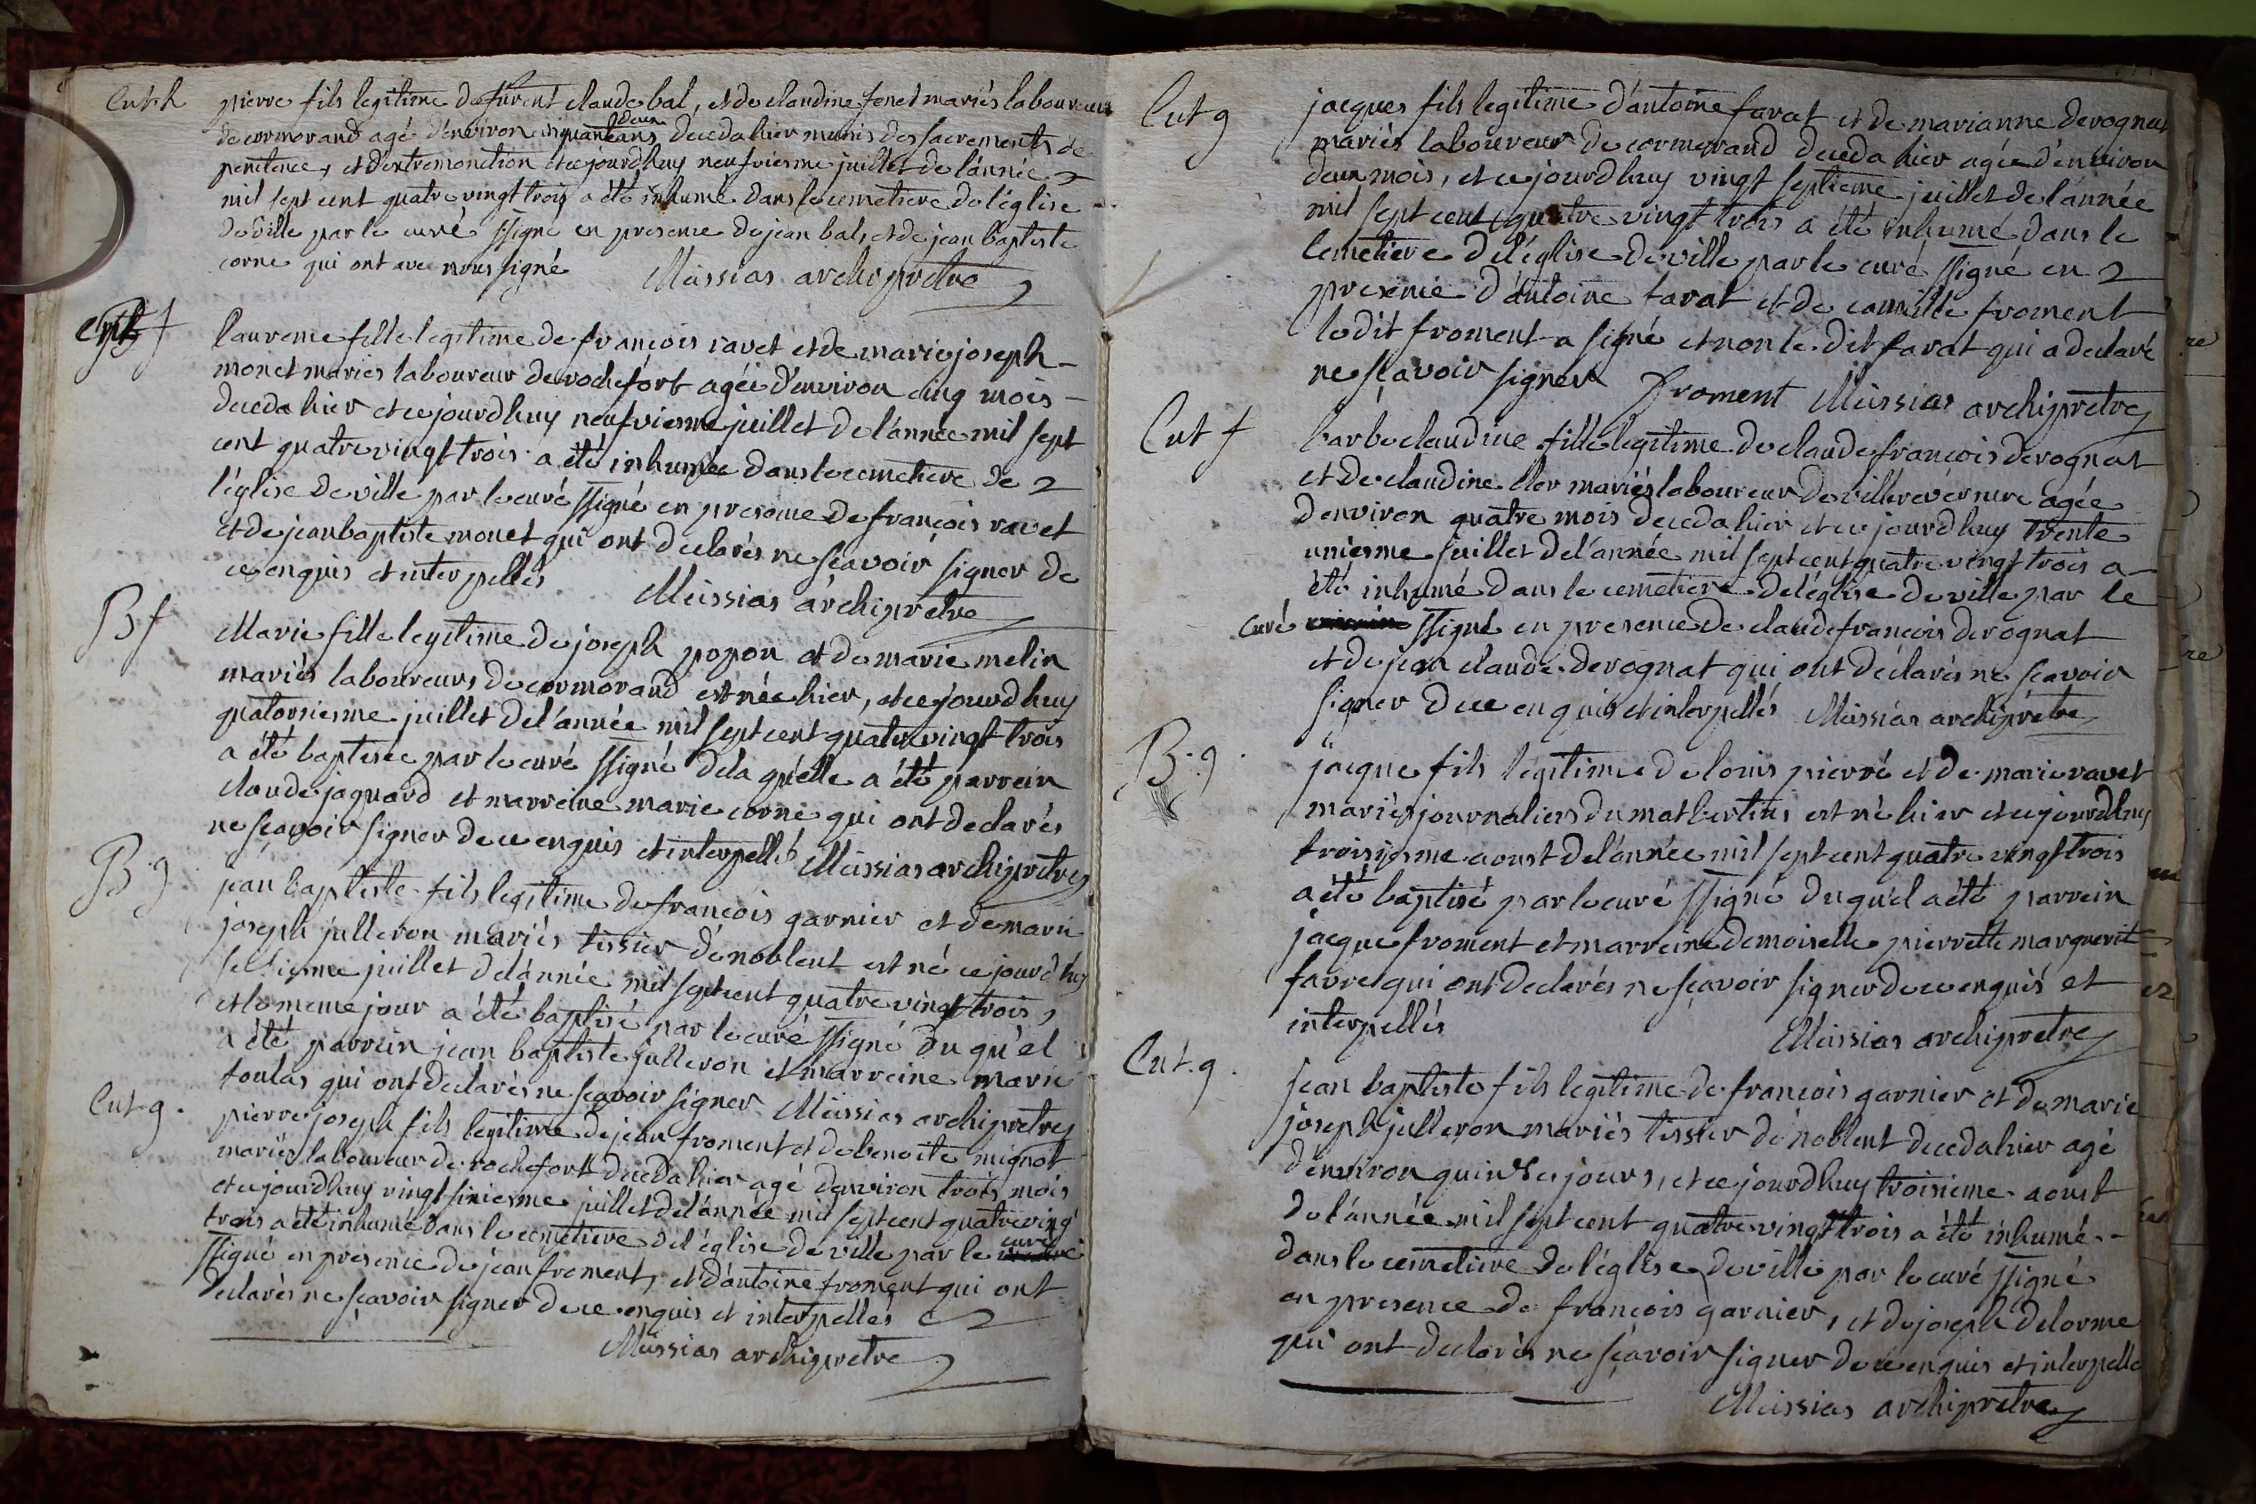 Ent. h
pierre fils legitime defunt claude bal, et de claudine fenet mariés laboureurs
de cormorand agé d'environ cinquante deux ans decedé hier munis des sacrements de
penitence, et d'extremonction et ce jourd'huy neufviesme juillet de l'année
mil sept cent quatre vingt trois a été inhumé dans le cemetiere de l'église
de ville par le curé ssigné en presence de jean bal, et de jean baptiste
corne qui ont avec nous signé Missias archiprêtre
f
laurence fille legitime de françois ravet et de marie joseph
monet mariés laboureur de rochefort agée d'environ cinq mois
deceda hier et ce jourd huy neufviesme juillet de l'année mil sept
cent quatre vingt trois a été inhumée dans le cemetiere de
l'église de ville par le curé ssigné en presence de françois ravet
et de jean baptiste monet qui ont declarés ne sçavoir signer de
ce enquis et interpellés Missias archiprêtre
B f
Marie fille legitime de joseph popon et de marie melin
mariés laboureurs de cormorand est née hier, et ce jourd huy
quatorsiesme juillet de l'année mil sept cent quatre vingt trois
a été baptisée par le curé ssigné de la quelle a été parrein
claude jaquard et marreine marie corne qui ont declarés
ne sçavoir signer de ce enquis et interpellés Missias archiprêtre
B g
jean baptiste fils legitime de françois garnier et de marie
joseph julleron mariés tissier de noblent est né ce jourd'huy
juillet de l'année mil sept cent quatre vingt trois,
et le meme jour a été baptisé par le curé ssigné du qu'el
a été parrein jean baptiste julleron et marreine marie
toulas qui ont declarés ne sçavoir signer Missias archiprêtre
Ent. g.
pierre joseph fils legitime de jean froment et de benoite mignot
mariés laboureur de rochefort deceda hier agé d'environ trois mois
et ce jourd huy vingt siniesme juillet de l'année mil sept cent quatre vingt
trois a été inhumé dans le cemetiere de l'église de ville par le curé
ssigné en presence de jean froment, et d'antoine froment qui ont
declarés ne sçavoir signer de ce enquis et interpellés
Missias archiprêtre
Ent g
jacques fils legitime d'antoine farat et de marianne derognat
mariés laboureur de cormorand deceda hier agée d'environ
deux mois, et ce jourd huy vingt septieme juillet de l'année
mil sept cent quatre vingt trois a été inhumé dans le
cemetiere de l'église de ville par le curé ssigné en
presence d'antoine farat et de camille froment
le dit froment a signé et non le dit farat qui a declaré
ne sçavoir signer froment Missias archiprêtre
Ent f
barbe claudine fille legitime de claude françois derognat
et de claudine cler mariés laboureur de villereversure agée
d'environ quatre mois deceda hier et ce jourd huy trente
uniesme juillet de l'année mil sept cent quatre vingt trois a
été inhumé dans le cemetiere de l'église de ville par le
curé ssigné en presence de claude françois derognat
et de jean claude derognat qui ont déclarés ne sçavoir
signer de ce enquis et interpellés Missias archiprêtre
B. g.
jacque fils legitime de louis pierre et de marie ravet
mariés journaliers du mat bertin est né hier et ce jourdhuy
troisiesme aoust de l'année mil sept cent quatre vingt trois
a été baptisé par le curé ssigné du qu'el a été parrein
jacque froment et marreine demoiselle pierrette marguerit
favre qui ont declarés ne sçavoir signer de ce enquis et
interpellés Missias archiprêtre
Ent. g.
jean baptiste fils legitime de françois garnier et de marie
joseph julleron mariés tissier de noblent deceda hier agé
d'environ quinse jours, et ce jourd huy troisieme aoust
de l'année mil sept cent quatre vingt trois a été inhumé
dans le cemetiere de l'église de ville par le curé ssigné
en presence de françois garnier, et de joseph delorme
qui ont declarés ne sçavoir signer de ce enquis et interpellé
Missias archiprêtre